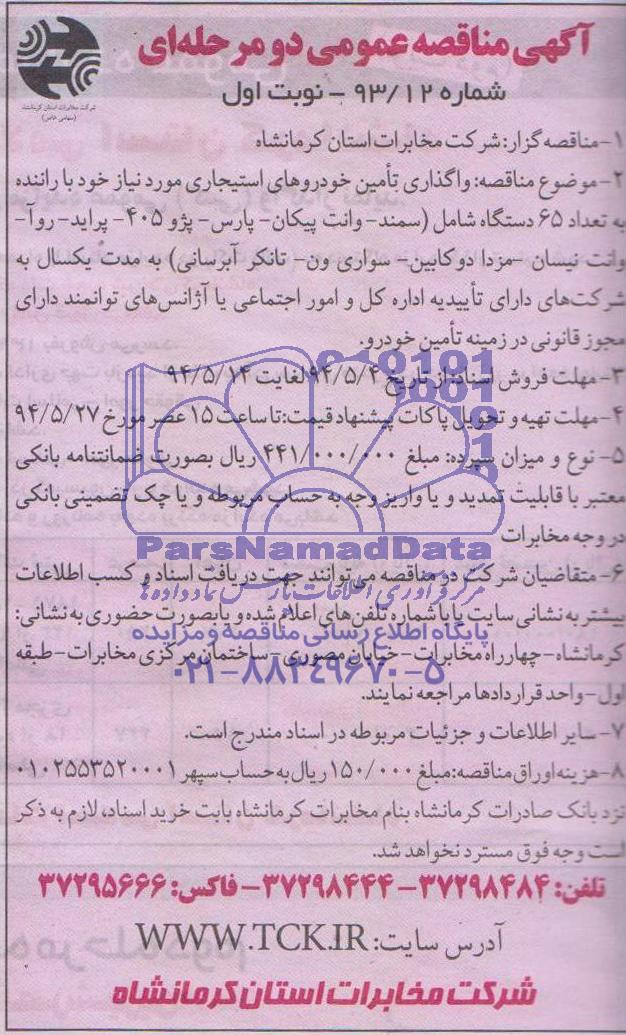 آگهی مناقصه عمومی دو مرحله‌ای
شماره ۹۳/۱۲ - نوبت اول
شرکت مخابرات استان کرمانشاه
(سهامی خاص)
۱- مناقصه گزار: شرکت مخابرات استان کرمانشاه
۲- موضوع مناقصه: واگذاری تأمین خودروهای استیجاری مورد نیاز خود با راننده
به تعداد ۶۵ دستگاه شامل (سمند- وانت پیکان- پارس- پژو ۴۰۵- پراید- روآ-
وانت نیسان -مزدا دوکابین- سواری ون- تانکر آبرسانی) به مدت یکسال به
شرکت‌های دارای تأییدیه اداره کل و امور اجتماعی یا آژانس‌های توانمند دارای
مجوز قانونی در زمینه تأمین خودرو.
۳- مهلت فروش اسناد: از تاریخ ۹۴/۵/۴ لغایت ۹۴/۵/۱۴
۴- مهلت تهیه و تحویل پاکات پیشنهاد قیمت: تا ساعت ۱۵ عصر مورخ ۹۴/۵/۲۷
۵- نوع و میزان سپرده: مبلغ ۴۴۱/۰۰۰/۰۰۰ ریال بصورت ضمانتنامه بانکی
معتبر با قابلیت تمدید و یا واریز وجه به حساب مربوطه و یا چک تضمینی بانکی
در وجه مخابرات
ParsNamadData
۶- متقاضیان شرکت در مناقصه می‌توانند جهت دریافت اسناد و کسب اطلاعات
مرکز فرآوری اطلاعات پارس نماد داده‌ها
بیشتر به نشانی سایت یا با شماره تلفن‌های اعلام شده و یا بصورت حضوری به نشانی:
پایگاه اطلاع رسانی مناقصه و مزایده
کرمانشاه- چهارراه مخابرات- خیابان مصوری- ساختمان مرکزی مخابرات- طبقه
۰۲۱-۸۸۳۴۹۶۷۰-۵
اول- واحد قراردادها مراجعه نمایند.
۷- سایر اطلاعات و جزئیات مربوطه در اسناد مندرج است.
۸- هزینه اوراق مناقصه: مبلغ ۱۵۰/۰۰۰ ریال به حساب سپهر ۰۱۰۲۵۵۳۵۲۰۰۰۱
نزد بانک صادرات کرمانشاه بنام مخابرات کرمانشاه بابت خرید اسناد، لازم به ذکر
است وجه فوق مسترد نخواهد شد.
تلفن: ۳۷۲۹۸۴۸۴ - ۳۷۲۹۸۴۴۴ - فاکس: ۳۷۲۹۵۶۶۶
آدرس سایت: WWW.TCK.IR
شرکت مخابرات استان کرمانشاه